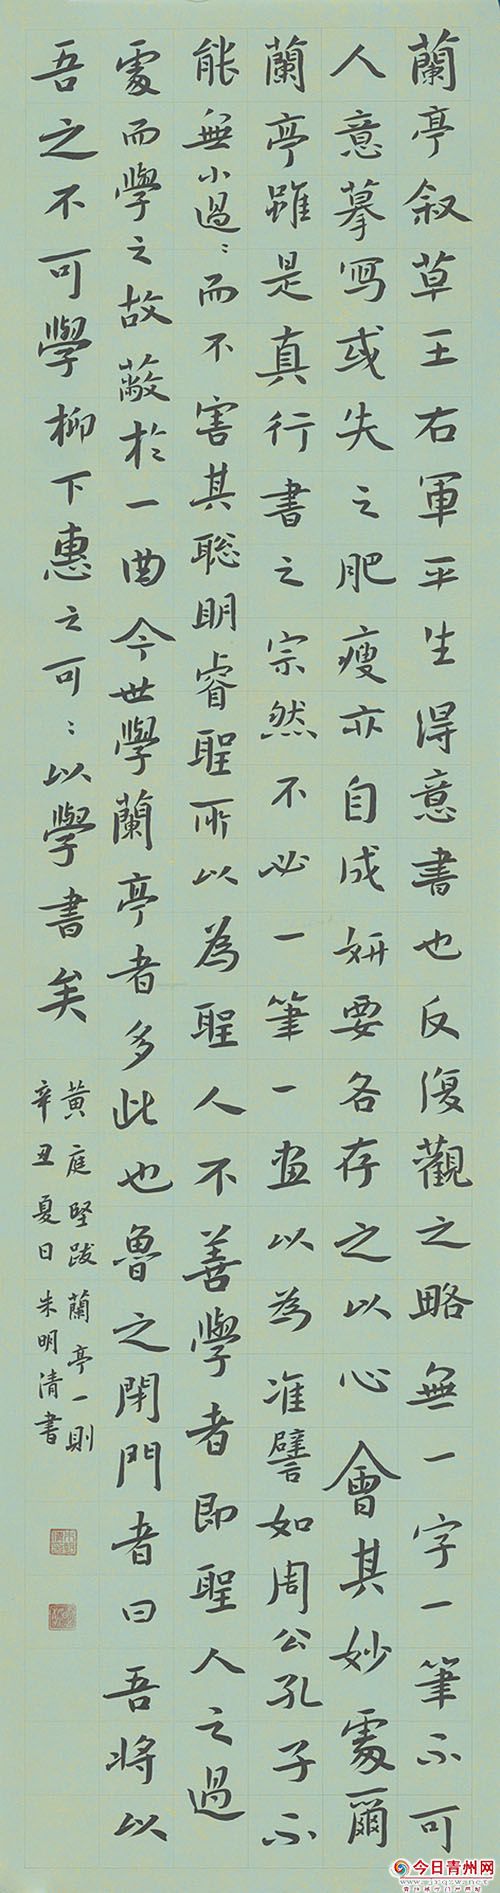 蘭亭叙草王右軍平生得意書也反復觀之略無一字一筆不可
人意摹寫或失之肥瘦亦自成妍要各存之以心會其妙處爾
蘭亭雖是真行書之宗然不必一筆一畫以為准譬如周公孔子不
能無小過〻而不害其聡明睿聖所以為聖人不善學者即聖人之過
處而學之故蔽於一曲今世學蘭亭者多此也魯之閉門者曰吾將以
吾之不可學柳下惠之可〻以學書矣
黄庭堅跋蘭亭一則
辛丑夏日朱明清書
今日青州网
www.jrqzw.net